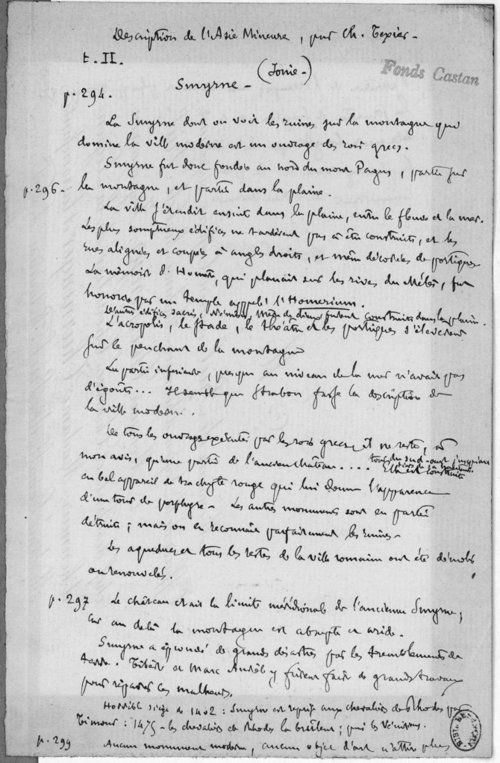 Description de l'Asie Mineure, par Ch. Texier.
t. II.
(Ionie.)
Fonds Castan
Smyrne.
p. 294.
La Smyrne dont on voit les ruines sur la montagne qui
domine la ville moderne est un ouvrage des rois grecs.
Smyrne fut donc fondée au nord du mont Pagus, partie sur
p. 296. la montagne, et partie dans la plaine.
La ville s'étendit ensuite dans la plaine, entre le fleuve et la mer.
Les plus somptueux édifices ne tardèrent pas à être construits, et les
rues alignées et coupées à angles droits, et même décorées de portiques.
La mémoire d'Homère, qui planait sur les rives du Mélès, fut
honorée par un temple appelé l'Homerium.
D'autres édifices sacrés, dieux furent construits dans la plaine.
L'acropole, le stade, le théâtre et les portiques s'élevèrent
sur le penchant de la montagne
La partie inférieure, presque au niveau de la mer n'avait pas
d'égouts... Il semble que Strabon fasse la description de
la ville moderne.
De tous les ouvrages exécutés par les rois grecs, il ne reste, à
mon avis, qu'une partie de l'ancien château....
tour du sud-ouest
construite
en bel appareil de trachyte rouge qui lui donne l'apparence
d'une tour de porphyre. Les autres monuments sont en partie
détruits; mais on en reconnaît parfaitement les ruines.
Les aqueducs et tous les restes de la ville romaine ont été démolis
ou renouvelés.
p. 297 Le château était la limite méridionale de l'ancienne Smyrne;
car au delà la montagne est abrupte et aride.
Smyrne a éprouvé de grands désastres par les tremblements de
terre. Tibère et Marc Aurèle y firent faire de grands travaux
pour réparer ces malheurs.
Horrible siège de 1402: Smyrne est reprise aux chevaliers de Rhodes par
Timour: 1475 - les chevaliers de Rhodes la brûlent; puis les Vénitiens.
p. 299 Aucun monument moderne, aucun objet d'art n'attire plus